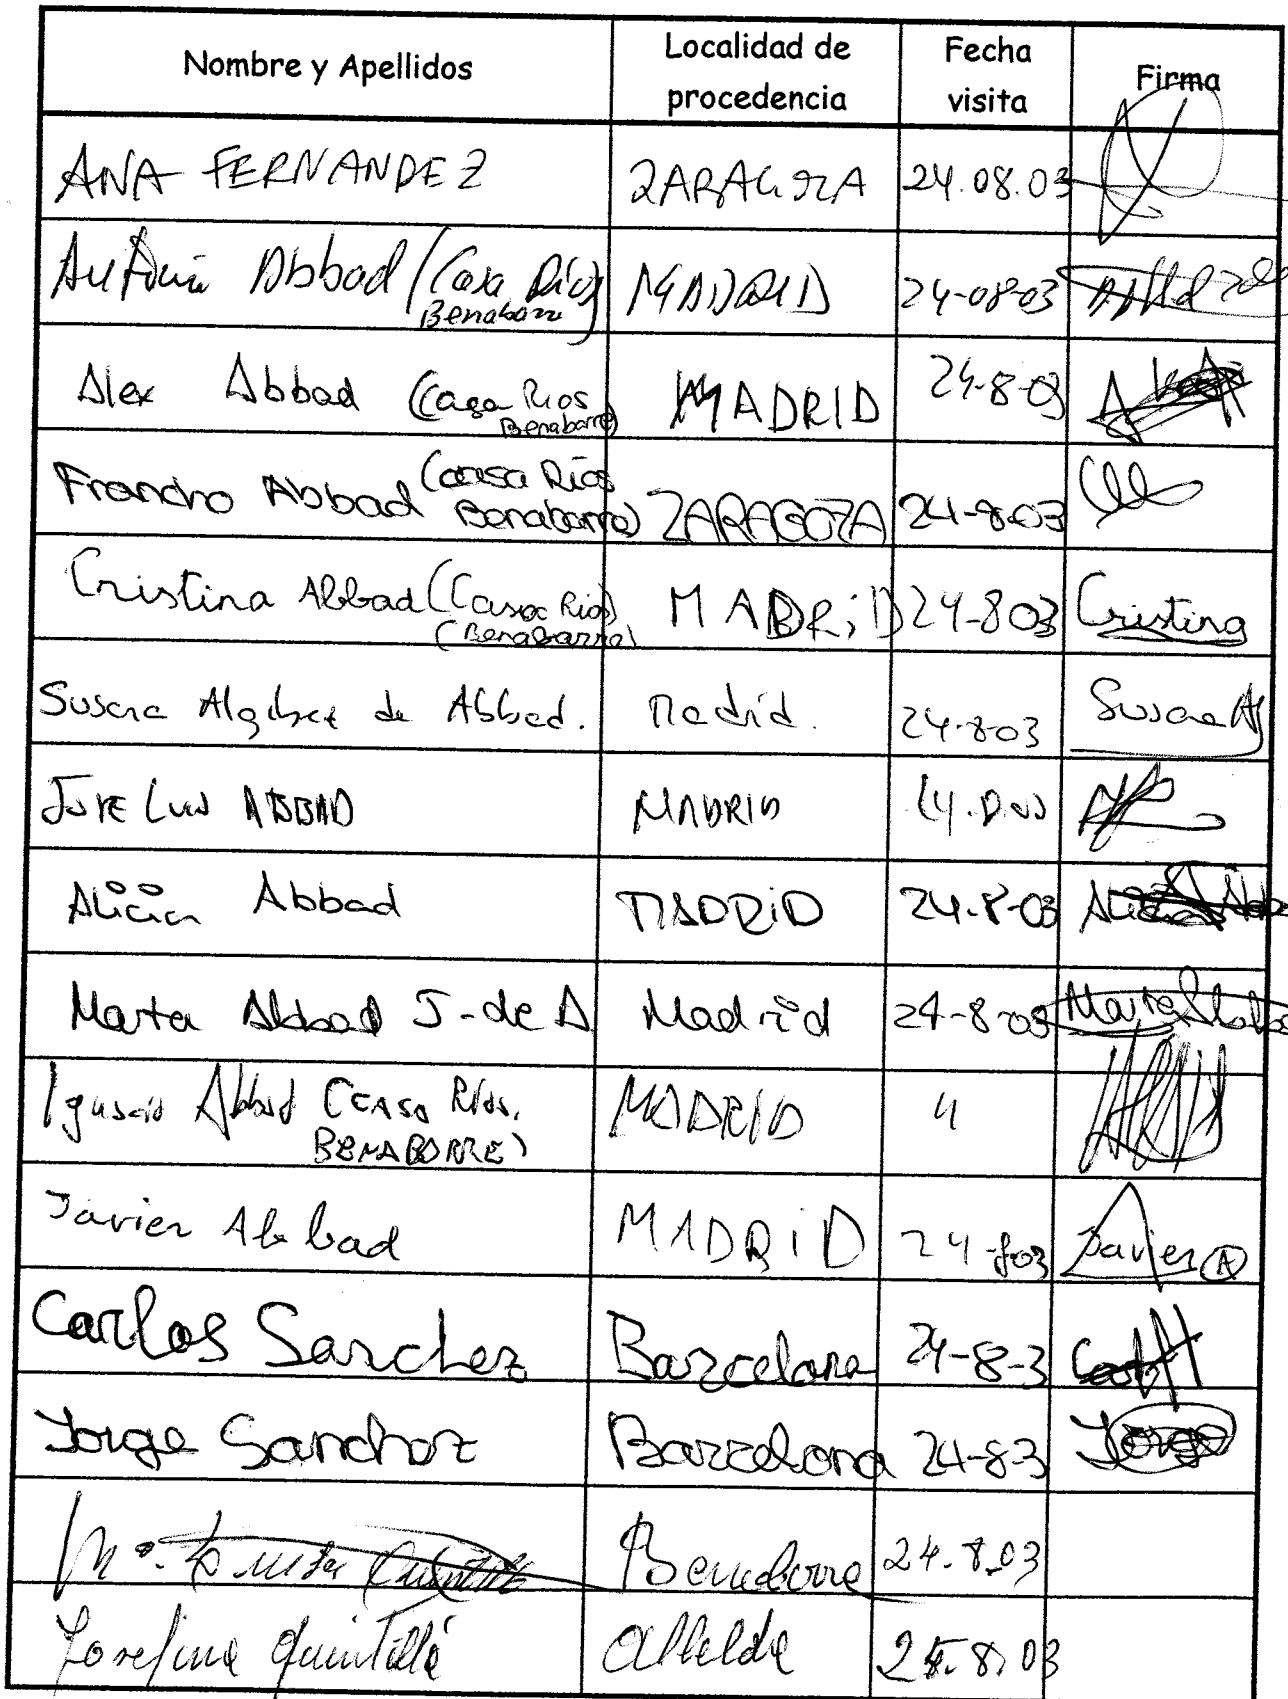 Nombre y Apellidos Localidad de procedencia Fecha visita Firma
ANA FERNANDEZ ZARAGOZA 24.08.03
Antonio Abbad (Casa Ríos Benabarre) MADRID 24-08-03
Alex Abbad (Casa Rios Benabarre) MADRID 24-8-03
Francho Abbad (Casa Ríos Benabarre) ZARAGOZA 24-8-03
Cristina Abbad (Casa Rios) (Benabarre) MADRiD 24-8 03 Cristina
Susana de Abbad. Madrid. 24-8-03 Susana
JOSE LUIS ABBAD MADRID
Alicia Abbad MADRiD 24-8-03
Marta Abbad J-de A Madrid 24-8-03 Marta
Ignacio Abbad (CASA Ríos. BENABARRE) MADRID "
Javier Abbad MADRiD 24-8-03 Javier A
Carlos Sanchez Barcelona 24-8-3
Jorge Sanchez Barcelona 24-8-3 Jorge
Mª. Luisa Benabarre 24.8.03
Josefina Quintillá Albelda 8.03